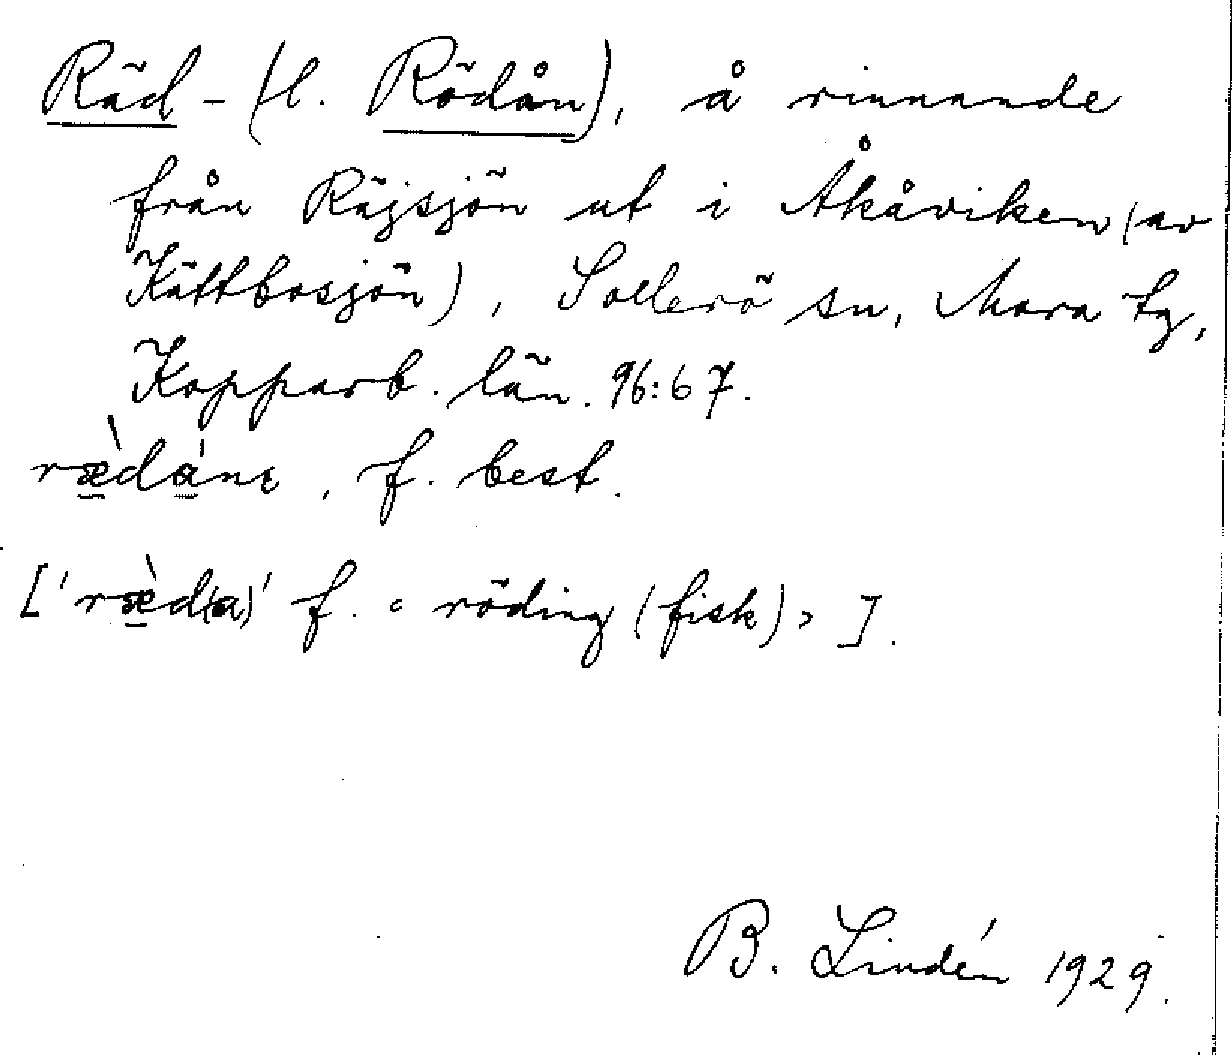 Räd- (l. Rödån), å rinnande
från Räjsjön ut i Åkåviken (av
Kättbosjön), Sollerö sn, Mora tg,
Kopparb. län. 96:67.
ræ̀dånę, f. best.
['ræ̀d(a)' f. = röding (fisk) > ].
B. Lindén 1929.